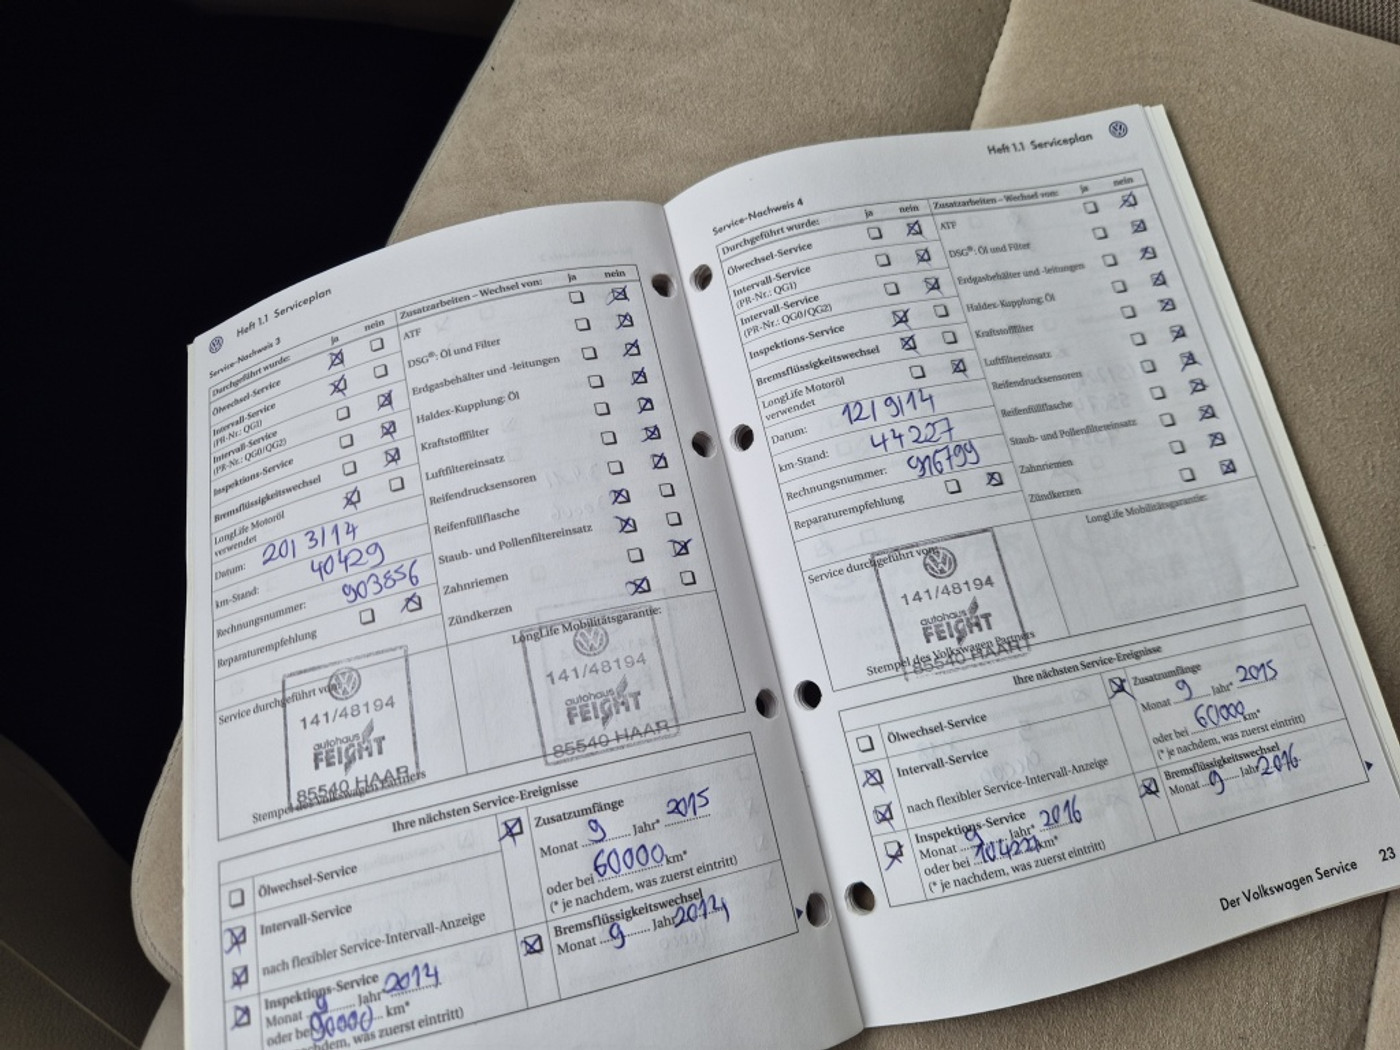 Heft 1.1 Serviceplan
Service-Nachweis 3
Durchgeführt wurde: ja nein
Ölwechsel-Service
Intervall-Service
(PR-Nr.: QG1)
Intervall-Service
(PR-Nr.: QG0/QG2)
Inspektions-Service
Bremsflüssigkeitswechsel
LongLife Motoröl
verwendet
Datum: 20/3/14
km-Stand: 40429
Rechnungsnummer: 903856
Reparaturempfehlung
Zusatzarbeiten – Wechsel von: ja nein
ATF
DSG®: Öl und Filter
Erdgasbehälter und -leitungen
Haldex-Kupplung: Öl
Kraftstofffilter
Luftfiltereinsatz
Reifendrucksensoren
Reifenfüllflasche
Staub- und Pollenfiltereinsatz
Zahnriemen
Zündkerzen
Service durchgeführt von:
141/48194
autohaus
FEIGHT
85540 HAAR
Stempel des Volkswagen Partners
LongLife Mobilitätsgarantie:
141/48194
autohaus
FEIGHT
85540 HAAR
Ihre nächsten Service-Ereignisse
Ölwechsel-Service
Intervall-Service
nach flexibler Service-Intervall-Anzeige
Inspektions-Service
Monat 9 Jahr* 2014
oder bei 90000 km*
(* je nachdem, was zuerst eintritt)
Zusatzumfänge
Monat 9 Jahr* 2015
oder bei 60000 km*
(* je nachdem, was zuerst eintritt)
Bremsflüssigkeitswechsel
Monat 9 Jahr 2014
Heft 1.1 Serviceplan
Service-Nachweis 4
Durchgeführt wurde: ja nein
Ölwechsel-Service
Intervall-Service
(PR-Nr.: QG1)
Intervall-Service
(PR-Nr.: QG0/QG2)
Inspektions-Service
Bremsflüssigkeitswechsel
LongLife Motoröl
verwendet
Datum: 12/9/14
km-Stand: 44227
Rechnungsnummer: 916799
Reparaturempfehlung
Zusatzarbeiten – Wechsel von: ja nein
ATF
DSG®: Öl und Filter
Erdgasbehälter und -leitungen
Haldex-Kupplung: Öl
Kraftstofffilter
Luftfiltereinsatz
Reifendrucksensoren
Reifenfüllflasche
Staub- und Pollenfiltereinsatz
Zahnriemen
Zündkerzen
Service durchgeführt von:
141/48194
autohaus
FEIGHT
85540 HAAR
Stempel des Volkswagen Partners
LongLife Mobilitätsgarantie:
Ihre nächsten Service-Ereignisse
Ölwechsel-Service
Intervall-Service
nach flexibler Service-Intervall-Anzeige
Inspektions-Service
Monat 9 Jahr* 2016
oder bei 104227 km*
(* je nachdem, was zuerst eintritt)
Zusatzumfänge
Monat 9 Jahr* 2015
oder bei 60000 km*
(* je nachdem, was zuerst eintritt)
Bremsflüssigkeitswechsel
Monat 9 Jahr 2016
Der Volkswagen Service 23